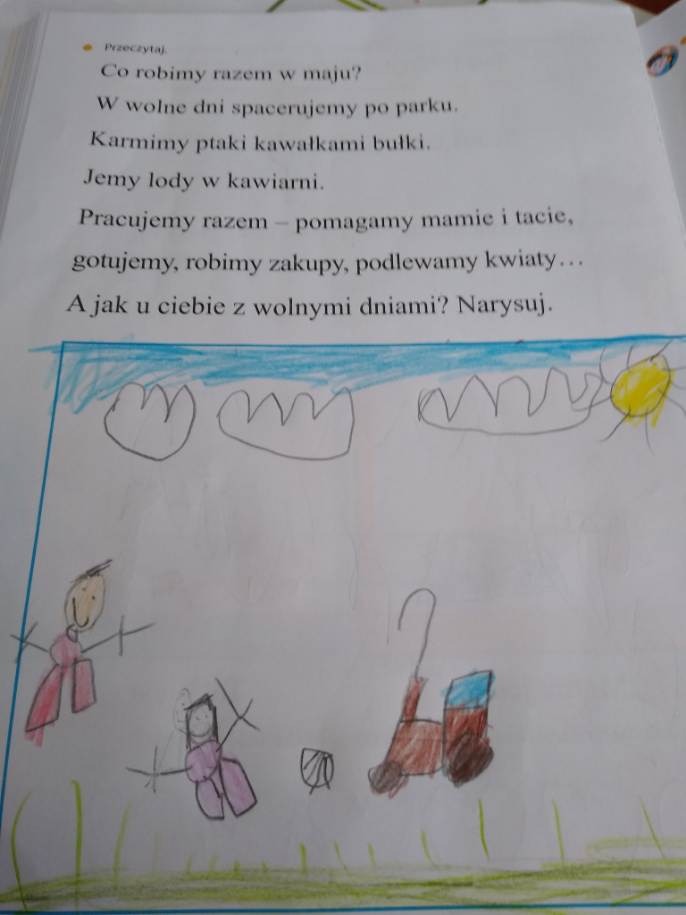 Przeczytaj.
Co robimy razem w maju?
W wolne dni spacerujemy po parku.
Karmimy ptaki kawałkami bułki.
Jemy lody w kawiarni.
Pracujemy razem – pomagamy mamie i tacie,
gotujemy, robimy zakupy, podlewamy kwiaty…
A jak u ciebie z wolnymi dniami? Narysuj.